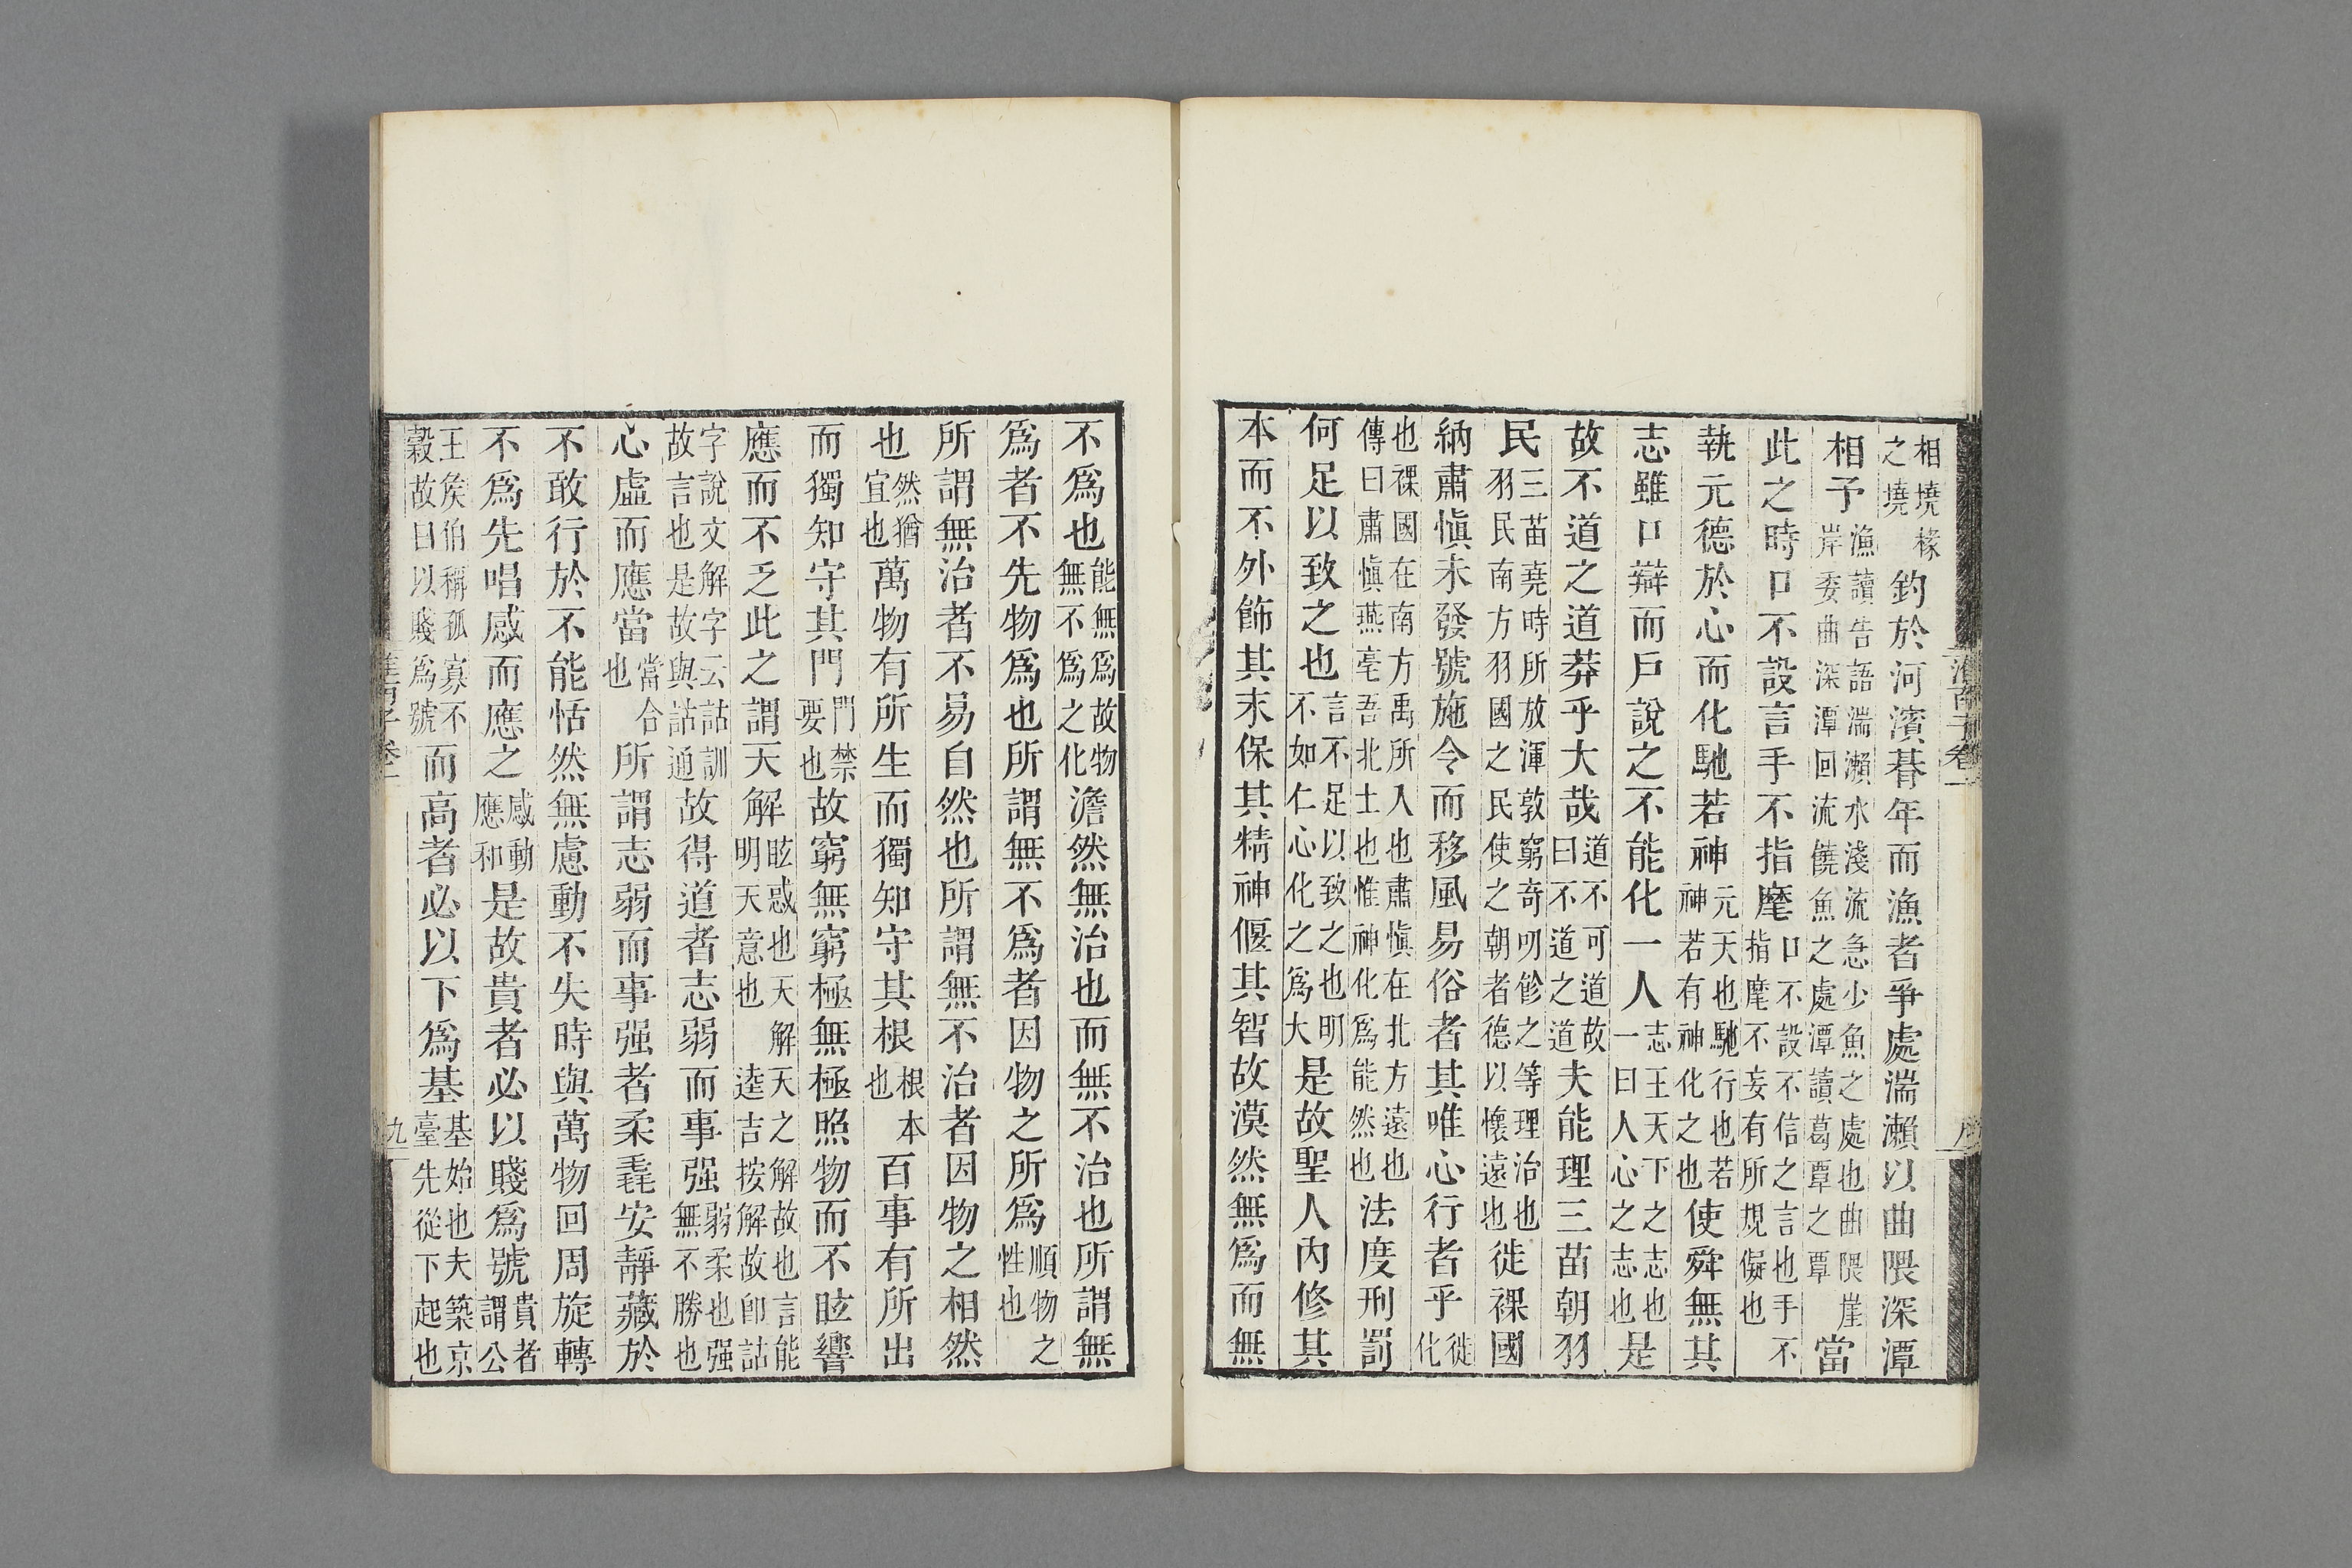 相墝㭬之墝釣於河濱朞年而漁者爭處湍瀨以曲隈深潭
相予漁讀告語湍瀨水淺流急少魚之處也曲隈崖岸委曲深潭回流饒魚之處潭讀葛覃之覃當
此之時口不設言手不指麾口不設不信之言也手不指麾不妄有所規儗也
執元德於心而化馳若神元天也馳行也若神若有神化之也使舜無其
志雖口辯而戶說之不能化一人志王天下之志也一曰人心之志也是
故不道之道莽乎大哉道不可道故曰不道之道夫能理三苗朝羽
民三苗堯時所放渾敦窮奇叨飻之等理治也羽民南方羽國之民使之朝者德以懷遠也徙裸國
納肅愼未發號施令而移風易俗者其唯心行者乎徙化
也裸國在南方禹所入也肅愼在北方遠也傳曰肅愼燕亳吾北土也惟神化爲能然也法度刑罰
何足以致之也言不足以致之也明不如仁心化之爲大是故聖人內修其
本而不外飾其末保其精神偃其智故漠然無爲而無
不爲也能無爲故物無不爲之化澹然無治也而無不治也所謂無
爲者不先物爲也所謂無不爲者因物之所爲順物之性也
所謂無治者不易自然也所謂無不治者因物之相然
也然猶宜也萬物有所生而獨知守其根根本也百事有所出
而獨知守其門門禁要也故窮無窮極無極照物而不眩響
應而不乏此之謂天解眩惑也天解天之解故也言能明天意也逵吉按解故卽詁
字說文解字云詁訓故言也是故與詁通故得道者志弱而事强弱柔也强無不勝也
心虛而應當當合也所謂志弱而事强者柔毳安靜藏於
不敢行於不能恬然無慮動不失時與萬物回周旋轉
不爲先唱感而應之感動應和是故貴者必以賤爲號貴者謂公
王矦伯稱孤寡不穀故曰以賤爲號而高者必以下爲基基始也夫築京臺先從下起也
淮南子卷一
九